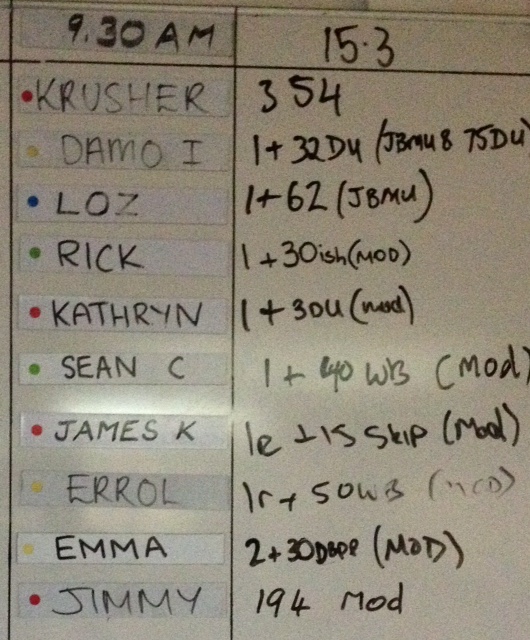 9.30 AM 15.3
KRUSHER 354
DAMO I 1+32DU (JBMU 8 75DU)
LOZ 1+62 (JBMU)
RICK 1+30ish (MOD)
KATHRYN 1+30U (mod)
SEAN C 1+ 40 WB (Mod)
JAMES K 1+15 SKIP (Mod)
ERROL 1r+50WB (MOD)
EMMA 2+30 (MOD)
JIMMY 194 Mod